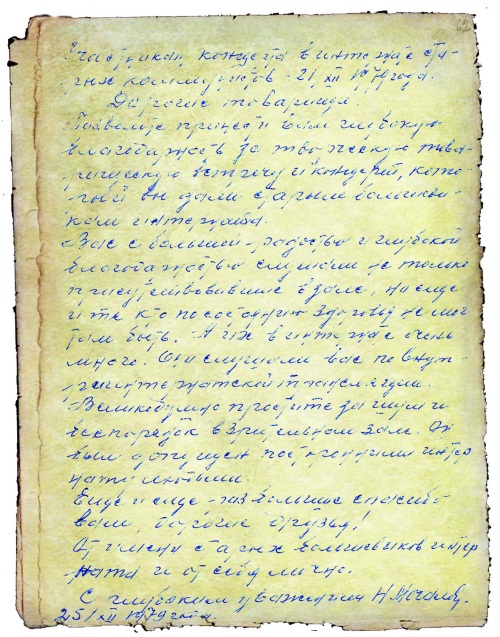 Участникам концерта в интернате ста-
рых коммунистов - 21/XII 1979 года.
Дорогие товарищи.
Позвольте принести вам глубокую
благодарность за творческую
встречу и концерт, кото-
рый вы дали старым большеви-
кам интерната.
Вас с большой радостью и глубокой
благодарностью слушали не только
присутствовавшие в зале, но еще
и те кто по состоянию здоровья не мог
там быть. А их в интернате очень
много. Они слушали вас по внут-
риинтернатской трансляции.
Великодушно простите за шум и
беспорядок в зрительном зале. Он
был допущен посторонними интер
нату людьми.
Еще и еще раз большое спасибо
вам, дорогие друзья!
От имени старых большевиков интер
ната и от себя лично.
С глубоким уважением
25/XII 1979 года.